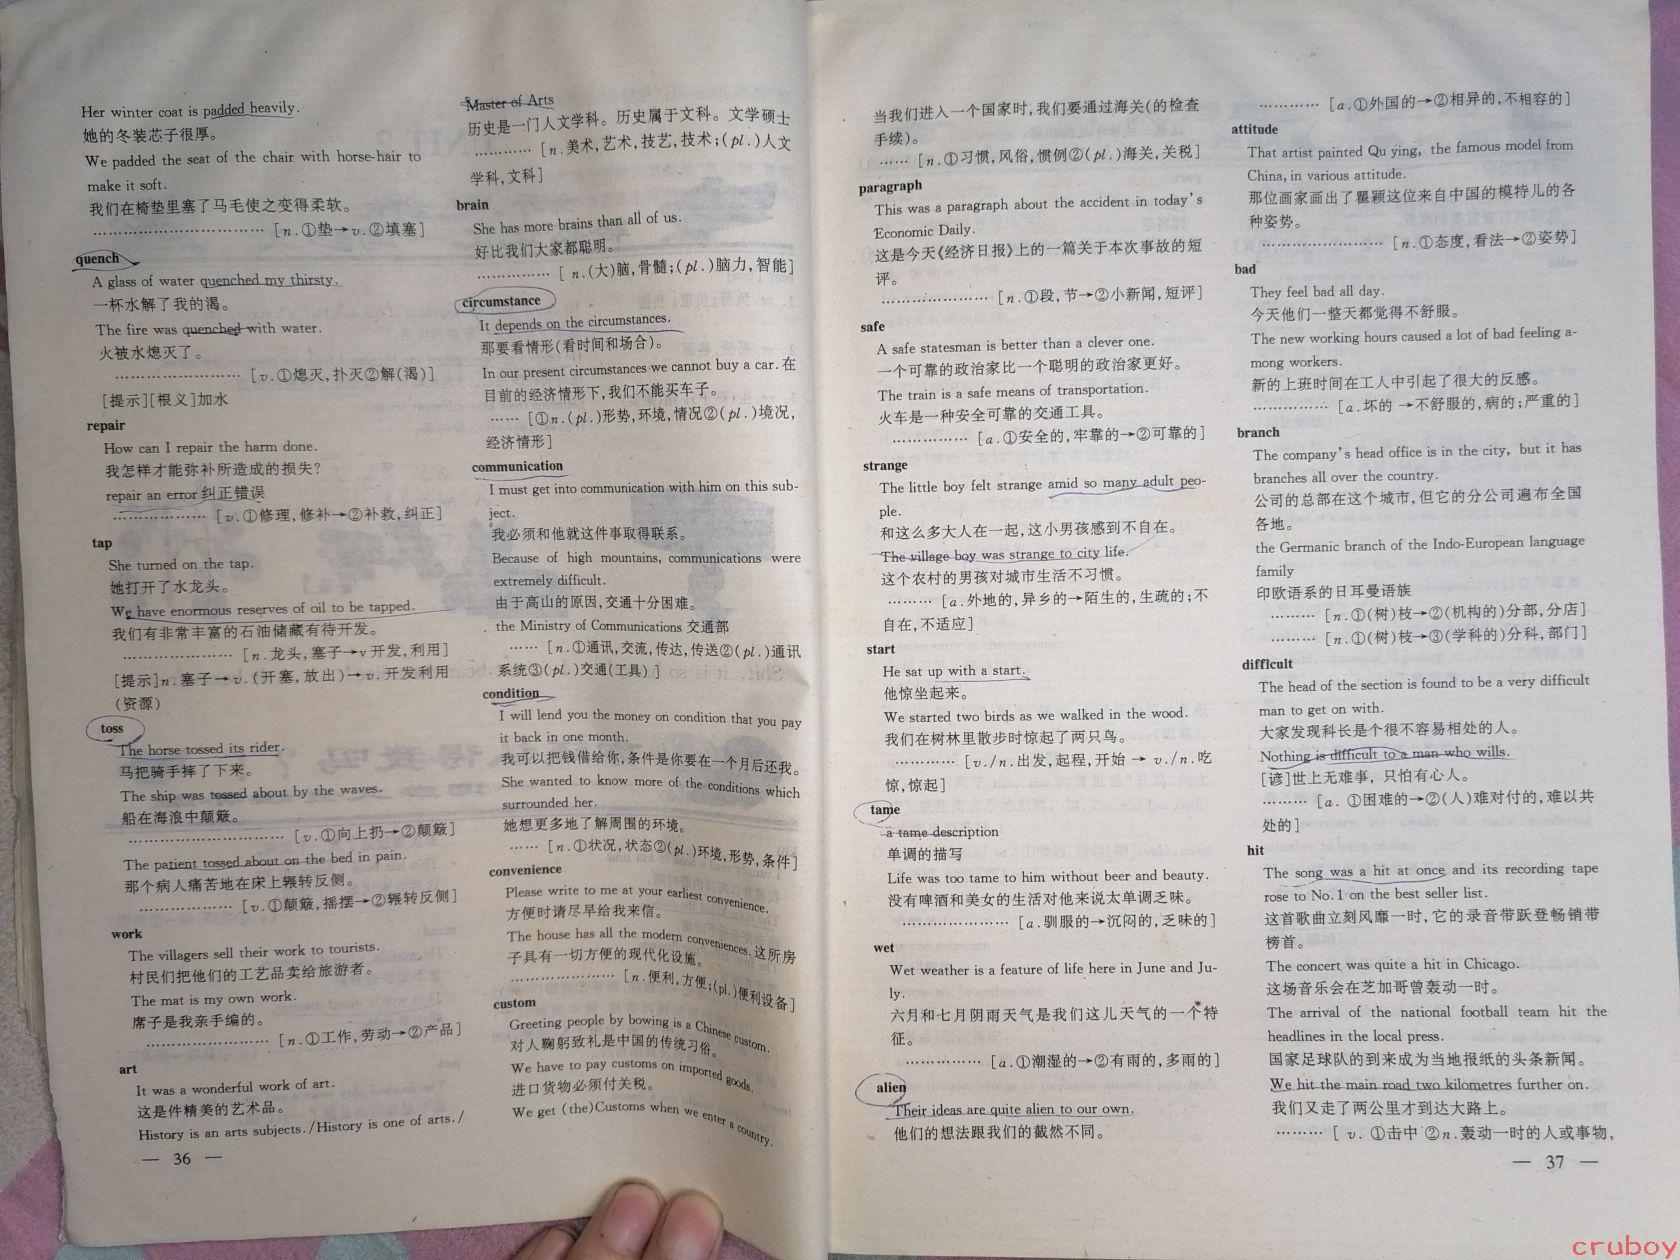 Her winter coat is padded heavily.
她的冬装芯子很厚。
We padded the seat of the chair with horse-hair to
make it soft.
我们在椅垫里塞了马毛使之变得柔软。
……………………………… [n.①垫→v.②填塞]
quench
A glass of water quenched my thirsty.
一杯水解了我的渴。
The fire was quenched with water.
火被水熄灭了。
…………………… [v.①熄灭,扑灭②解(渴)]
[提示][根义]加水
repair
How can I repair the harm done.
我怎样才能弥补所造成的损失?
repair an error 纠正错误
……………… [v.①修理,修补→②补救,纠正]
tap
She turned on the tap.
她打开了水龙头。
We have enormous reserves of oil to be tapped.
我们有非常丰富的石油储藏有待开发。
………………… [n.龙头,塞子→v开发,利用]
[提示]n.塞子→v.(开塞,放出)→v.开发利用
(资源)
toss
The horse tossed its rider.
马把骑手摔了下来。
The ship was tossed about by the waves.
船在海浪中颠簸。
……………………………… [v.①向上扔→②颠簸]
The patient tossed about on the bed in pain.
那个病人痛苦地在床上辗转反侧。
……………… [v.①颠簸,摇摆→②辗转反侧]
work
The villagers sell their work to tourists.
村民们把他们的工艺品卖给旅游者。
The mat is my own work.
席子是我亲手编的。
…………………… [n.①工作,劳动→②产品]
art
It was a wonderful work of art.
这是件精美的艺术品。
History is an arts subjects./History is one of arts./
— 36 —
Master of Arts
历史是一门人文学科。历史属于文科。文学硕士
………… [n.美术,艺术,技艺,技术;(pl.)人文
学科,文科]
brain
She has more brains than all of us.
好比我们大家都聪明。
…………… [n.(大)脑,骨髓;(pl.)脑力,智能]
circumstance
It depends on the circumstances.
那要看情形(看时间和场合)。
In our present circumstances we cannot buy a car.在
目前的经济情形下,我们不能买车子。
…… [①n.(pl.)形势,环境,情况②(pl.)境况,
经济情形]
communication
I must get into communication with him on this sub-
ject.
我必须和他就这件事取得联系。
Because of high mountains, communications were
extremely difficult.
由于高山的原因,交通十分困难。
the Ministry of Communications 交通部
…… [n.①通讯,交流,传达,传送②(pl.)通讯
系统③(pl.)交通(工具)]
condition
I will lend you the money on condition that you pay
it back in one month.
我可以把钱借给你,条件是你要在一个月后还我。
She wanted to know more of the conditions which
surrounded her.
她想更多地了解周围的环境。
…… [n.①状况,状态②(pl.)环境,形势,条件]
convenience
Please write to me at your earliest convenience.
方便时请尽早给我来信。
The house has all the modern conveniences.这所房
子具有一切方便的现代化设施。
………………… [n.便利,方便;(pl.)便利设备]
custom
Greeting people by bowing is a Chinese custom.
对人鞠躬致礼是中国的传统习俗。
We have to pay customs on imported goods.
进口货物必须付关税。
We get (the)Customs when we enter a country.
当我们进入一个国家时,我们要通过海关(的检查
手续)。
…… [n.①习惯,风俗,惯例②(pl.)海关,关税]
paragraph
This was a paragraph about the accident in today's
Economic Daily.
这是今天《经济日报》上的一篇关于本次事故的短
评。
………………… [n.①段,节→②小新闻,短评]
safe
A safe statesman is better than a clever one.
一个可靠的政治家比一个聪明的政治家更好。
The train is a safe means of transportation.
火车是一种安全可靠的交通工具。
…………… [a.①安全的,牢靠的→②可靠的]
strange
The little boy felt strange amid so many adult peo-
ple.
和这么多大人在一起,这小男孩感到不自在。
The village boy was strange to city life.
这个农村的男孩对城市生活不习惯。
……… [a.外地的,异乡的→陌生的,生疏的;不
自在,不适应]
start
He sat up with a start.
他惊坐起来。
We started two birds as we walked in the wood.
我们在树林里散步时惊起了两只鸟。
………… [v./n.出发,起程,开始 → v./n.吃
惊,惊起]
tame
a tame description
单调的描写
Life was too tame to him without beer and beauty.
没有啤酒和美女的生活对他来说太单调乏味。
………………… [a.驯服的→沉闷的,乏味的]
wet
Wet weather is a feature of life here in June and Ju-
ly.
六月和七月阴雨天气是我们这儿天气的一个特
征。
…………… [a.①潮湿的→②有雨的,多雨的]
alien
Their ideas are quite alien to our own.
他们的想法跟我们的截然不同。
………… [a.①外国的→②相异的,不相容的]
attitude
That artist painted Qu ying, the famous model from
China, in various attitude.
那位画家画出了瞿颖这位来自中国的模特儿的各
种姿势。
…………………… [n.①态度,看法→②姿势]
bad
They feel bad all day.
今天他们一整天都觉得不舒服。
The new working hours caused a lot of bad feeling a-
mong workers.
新的上班时间在工人中引起了很大的反感。
…………… [a.坏的 →不舒服的,病的;严重的]
branch
The company's head office is in the city, but it has
branches all over the country.
公司的总部在这个城市,但它的分公司遍布全国
各地。
the Germanic branch of the Indo-European language
family
印欧语系的日耳曼语族
……… [n.①(树)枝→②(机构的)分部,分店]
……… [n.①(树)枝→③(学科的)分科,部门]
difficult
The head of the section is found to be a very difficult
man to get on with.
大家发现科长是个很不容易相处的人。
Nothing is difficult to a man who wills.
[谚]世上无难事, 只怕有心人。
……… [a. ①困难的→②(人)难对付的,难以共
处的]
hit
The song was a hit at once and its recording tape
rose to No.1 on the best seller list.
这首歌曲立刻风靡一时,它的录音带跃登畅销带
榜首。
The concert was quite a hit in Chicago.
这场音乐会在芝加哥曾轰动一时。
The arrival of the national football team hit the
headlines in the local press.
国家足球队的到来成为当地报纸的头条新闻。
We hit the main road two kilometres further on.
我们又走了两公里才到达大路上。
……… [v. ①击中 ②n.轰动一时的人或事物,
— 37 —
cruboy